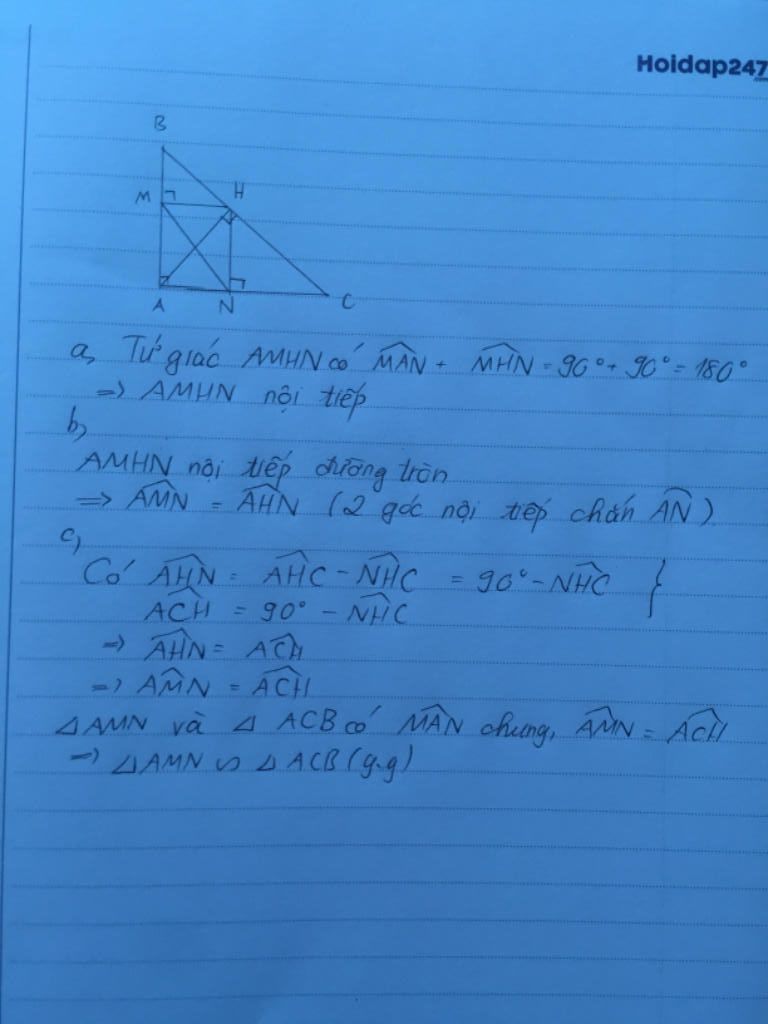 Hoidap247
B
M
H
A
N
C
a, Tứ giác AMHN có MAN̂ + MHN̂ = 90° + 90° = 180°
=> AMHN nội tiếp
b,
AMHN nội tiếp đường tròn
=> AMN̂ = AHN̂ (2 góc nội tiếp chắn AN̂)
c,
Có AHN̂ = AHĈ - NHĈ = 90° - NHĈ }
ACĤ = 90° - NHĈ
=> AHN̂ = ACĤ
=> AMN̂ = ACĤ
△AMN và △ ACB có MAN̂ chung, AMN̂ = ACĤ
=> △AMN ∽ △ACB (g.g)